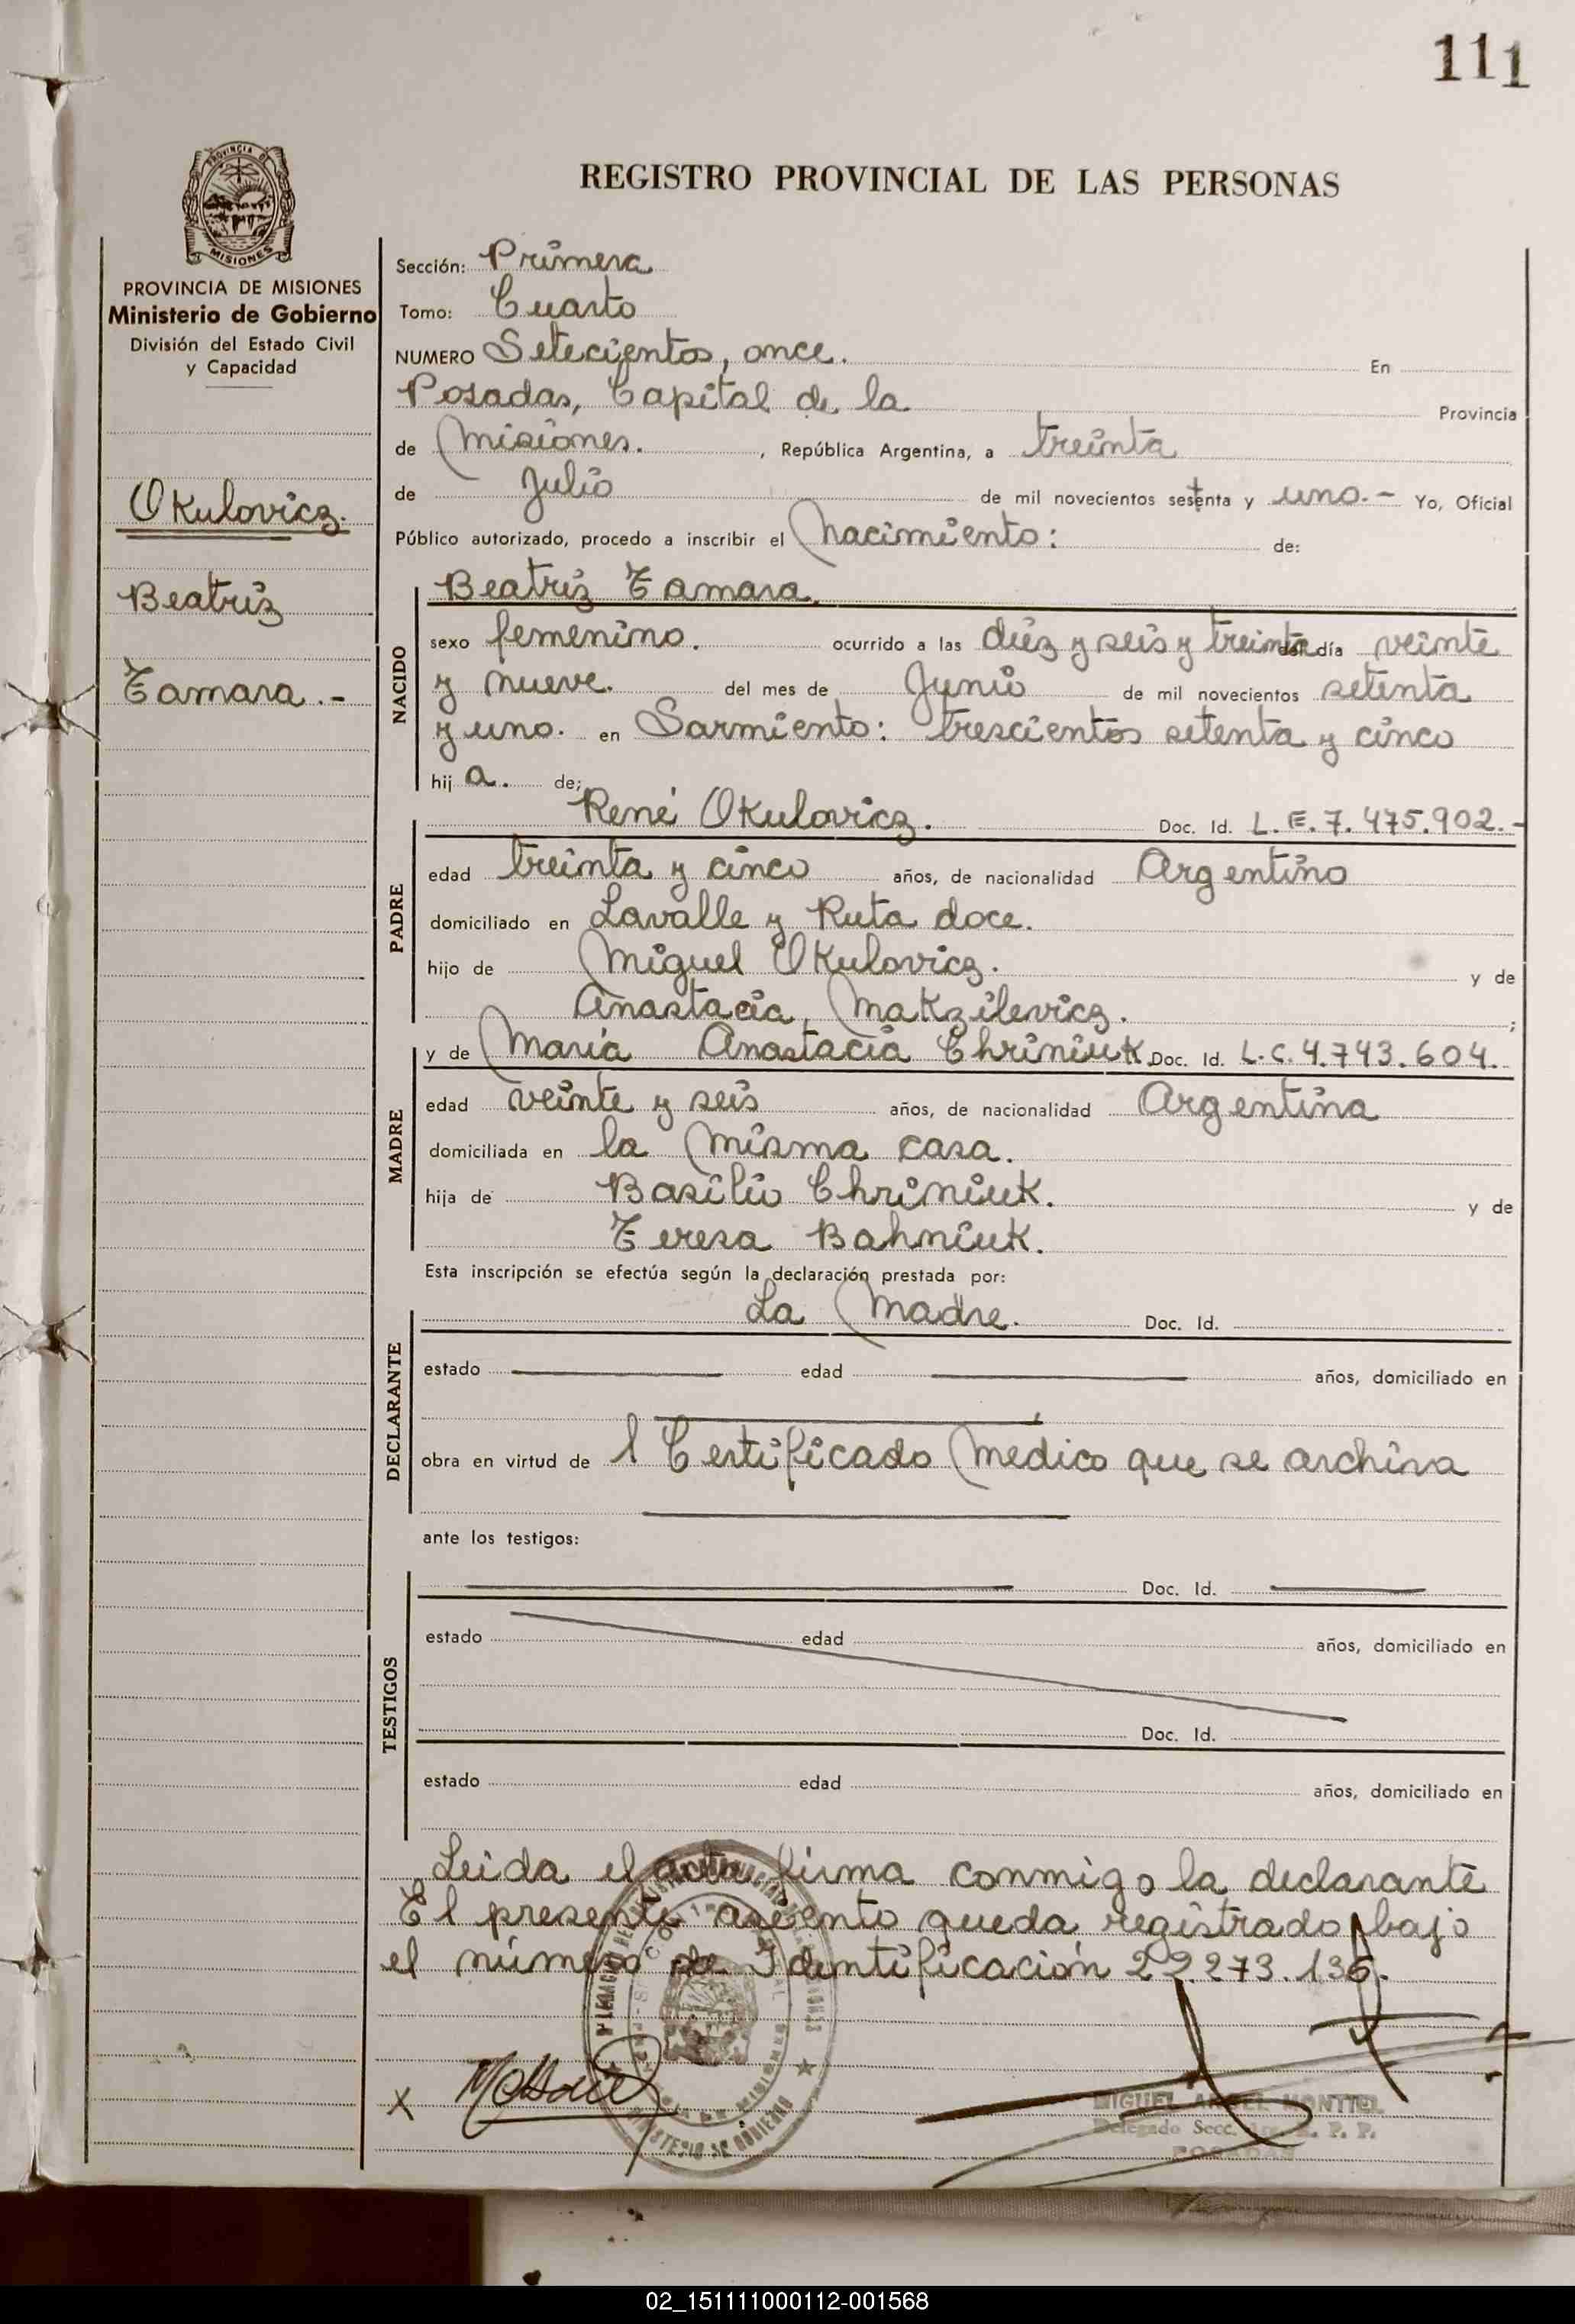 111
PROVINCIA DE
MISIONES
REGISTRO PROVINCIAL DE LAS PERSONAS
PROVINCIA DE MISIONES
Ministerio de Gobierno
División del Estado Civil
y Capacidad
Okulovicz.
Beatriz
Tamara.-
Sección: Primera
Tomo: Cuarto
NUMERO Setecientos, once. En
Posadas, Capital de la Provincia
de Misiones. , República Argentina, a treinta
de Julio de mil novecientos setenta y uno.- Yo, Oficial
Público autorizado, procedo a inscribir el Nacimiento: de:
NACIDO
Beatriz Tamara.
sexo femenino. ocurrido a las diez y seis y treinta del día veinte
y nueve. del mes de Junio de mil novecientos setenta
y uno. en Sarmiento: trescientos setenta y cinco
hij a. de;
PADRE
René Okulovicz. Doc. Id. L.E.7.475.902.-
edad treinta y cinco años, de nacionalidad Argentino
domiciliado en Lavalle y Ruta doce.
hijo de Miguel Okulovicz. y de
Anastacia, Makzilevicz. ;
MADRE
y de María Anastacia Chriniuk. Doc. Id. L.C.4.743.604.
edad veinte y seis años, de nacionalidad Argentina
domiciliada en la misma casa.
hija de Basilio Chriniuk. y de
Teresa Bahniuk.
Esta inscripción se efectúa según la declaración prestada por:
DECLARANTE
La Madre. Doc. Id.
estado edad años, domiciliado en
obra en virtud de l Certificado Medico que se archiva
ante los testigos:
TESTIGOS
Doc. Id.
estado edad años, domiciliado en
Doc. Id.
estado edad años, domiciliado en
Leida el acta firma conmigo la declarante
El presente asiento queda registrado bajo
el número de Identificación 22.273.136.
X
MINISTERIO DE GOBIERNO
MIGUEL ANGEL MONTIEL
Delegado Secc. 1ra. R. P. P.
POSADAS
02_151111000112-001568